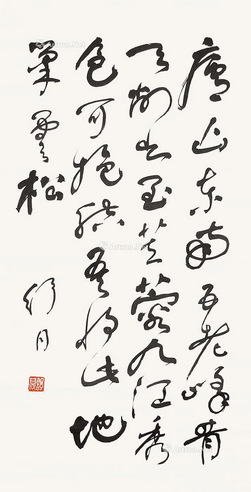 庐山东南五老峰青
天削出金芙蓉九江秀
色可揽结吾将此地
巢云松